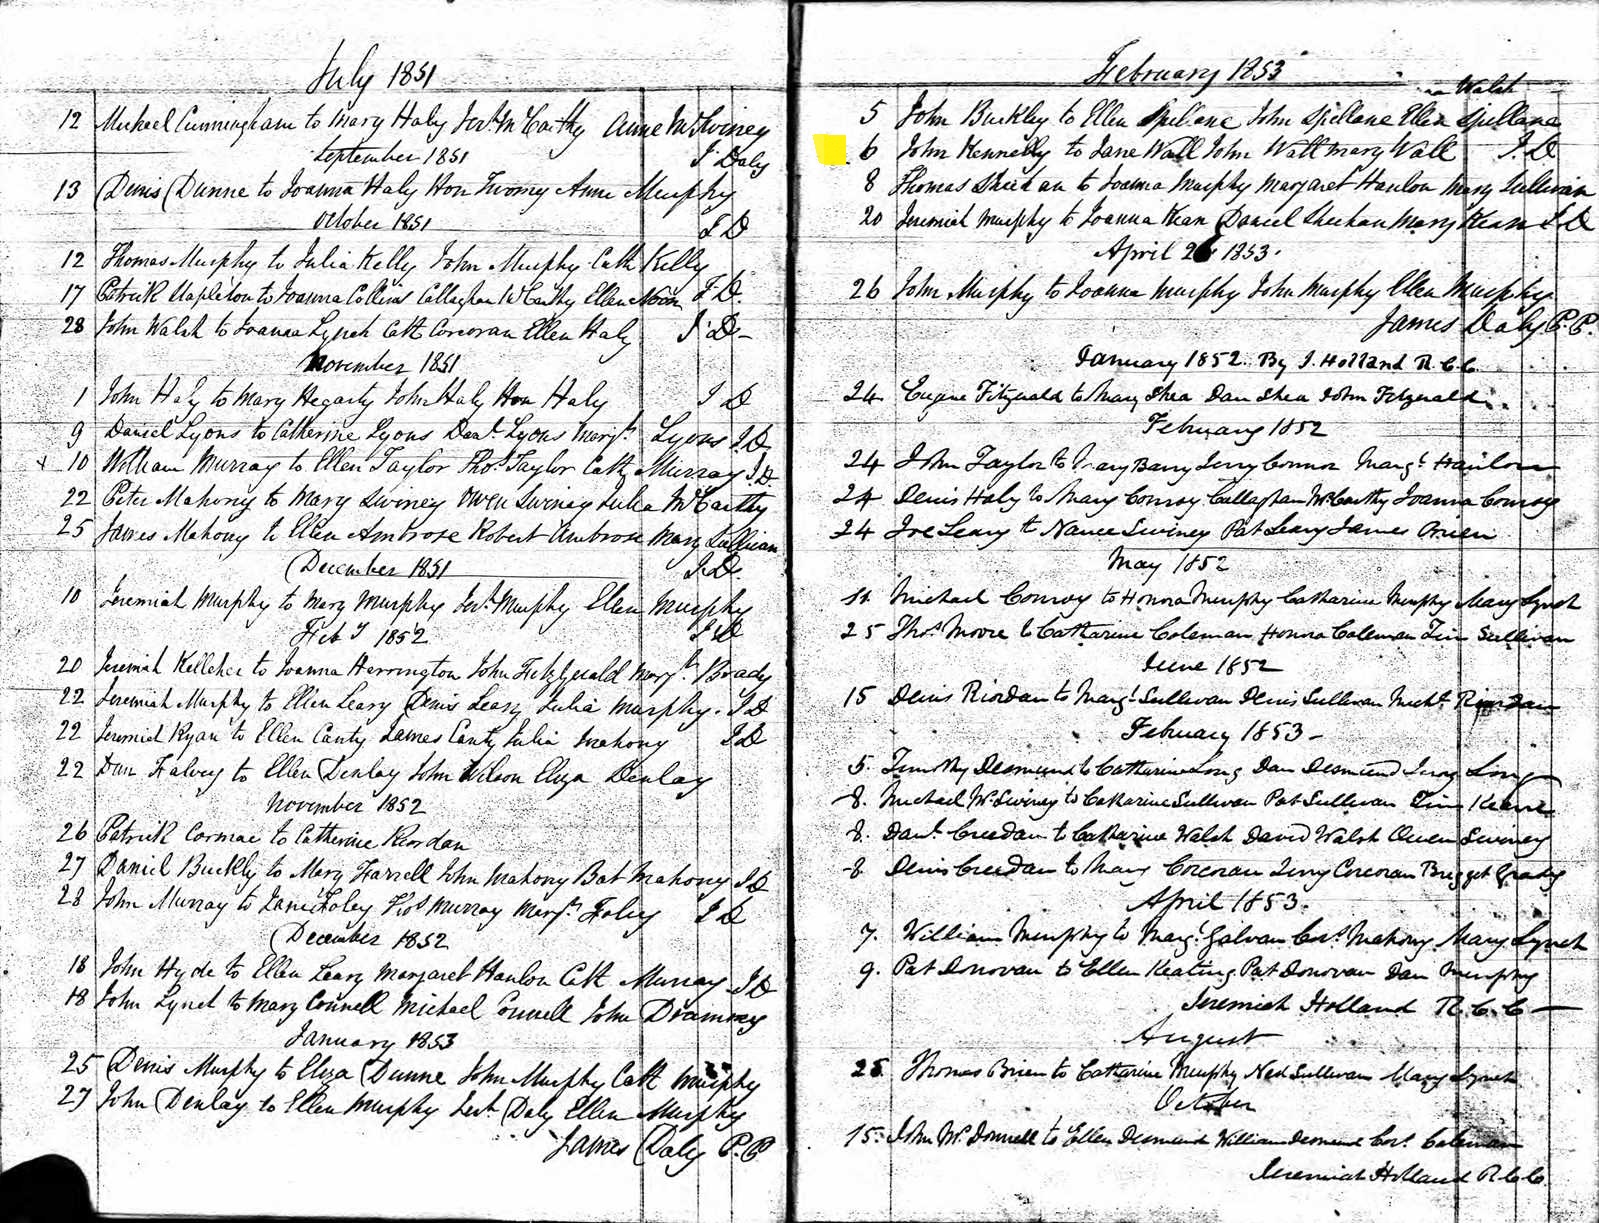 July 1851
12 Michael Cunningham to Mary Haly Jer.h McCarthy Anne McSwiney
September 1851 J. Daly
13 Denis Dunne to Joanna Haly Hon Twomey Anne Murphy
October 1851 J D
12 Thomas Murphy to Julia Kelly John Murphy Cath Kelly
17 Patrick Stapleton to Joanna Collins Callaghan McCarthy Ellen J. D.
28 John Walsh to Joanna Lynch Cath Corcoran Ellen Haly J. D -
November 1851
1 John Haly to Mary Hegarty John Haly Hon Haly J D
9 Daniel Lyons to Catherine Lyons Dan.l Lyons Marg.t Lyons J. D
x 10 William Murray to Ellen Taylor Tho.s Taylor Cath Murray J. D
22 Peter Mahony to Mary Swiney Owen Swiney Julia McCarthy
25 James Mahony to Ellen Ambrose Robert Ambrose Mary Sullivan
December 1851 J. D.
10 Jeremiah Murphy to Mary Murphy Jer.h Murphy Ellen Murphy
Feb y 1852 J. D
20 Jeremiah Kelleher to Joanna Herrington John FitzGerald Marg.t Brady
22 Jeremiah Murphy to Ellen Leary Denis Leary Julia Murphy. J D
22 Jeremiah Ryan to Ellen Canty James Canty Julia Mahony J D
22 Dan Halvey to Ellen Denlay John Wilson Eliza Denlay
November 1852
26 Patrick Cormac to Catherine Riordan
27 Daniel Buckly to Mary Farrell John Mahony Bat Mahony J D
28 John Murray to Jane Foley Tho.s Murray Marg.t Foley J D
December 1852
18 John Hyde to Ellen Leary Margaret Hanlon Cath Murray J D
18 John Lynch to Mary Connell Michael Connell John
January 1853
25 Denis Murphy to Eliza Dunne John Murphy Cath Murphy
27 John Denlay to Ellen Murphy Jer.h Daly Ellen Murphy
James Daly P. P
February 1853
Walsh
5 John Buckley to Ellen Spillane John Spillane Ellen Spillane
6 John Kennelly to Jane Wall John Wall Mary Wall J. D
8 Thomas Sheehan to Joanna Murphy Margaret Hanlon Mary Sullivan
20 Jeremiah Murphy to Joanna Kean Daniel Sheehan Mary Kean J. D
April 26 1853.
26 John Murphy to Joanna Murphy John Murphy Ellen Murphy
James Daly P. P.
January 1852. By J. Holland R. C. C.
24 Eugene Fitzgerald to Mary Shea Dan Shea John Fitzgerald
February 1852
24 John Taylor to Mary Barry Jerry Connor Marg.t Hanlon
24 Denis Haly to Mary Conroy Callaghan McCarthy Joanna Conroy
24 Joe Leary to Nance Swiney Pat Leary James
May 1852
11 Michael Conroy to Honora Murphy Catharine Murphy Mary Lynch
25 Tho.s Moore to Catharine Coleman Honora Coleman Tim Sullivan
June 1852
15 Denis Riordan to Marg.t Sullivan Denis Sullivan Mich.l Riordan
February 1853 -
5. Timothy Desmond to Catharine Long Dan Desmond Jerry Long
8. Michael McSwiney to Catharine Sullivan Pat Sullivan Tim Keane
8. Dan.l Creedan to Catharine Walsh David Walsh Owen Swiney
8 Denis Creedan to Mary Corcoran Jerry Corcoran Bridget Grady
April 1853.
7. William Murphy to Marg.t Galvan Cor.s Mahony Mary Lynch
9. Pat Donovan to Ellen Keating Pat Donovan Dan Murphy
Jeremiah Holland R. C. C -
August
25 Thomas Brien to Catharine Murphy Ned Sullivan Mary Lynch
October
15. John McDonnell to Ellen Desmond William Desmond Cor.s Coleman
Jeremiah Holland R. C. C.